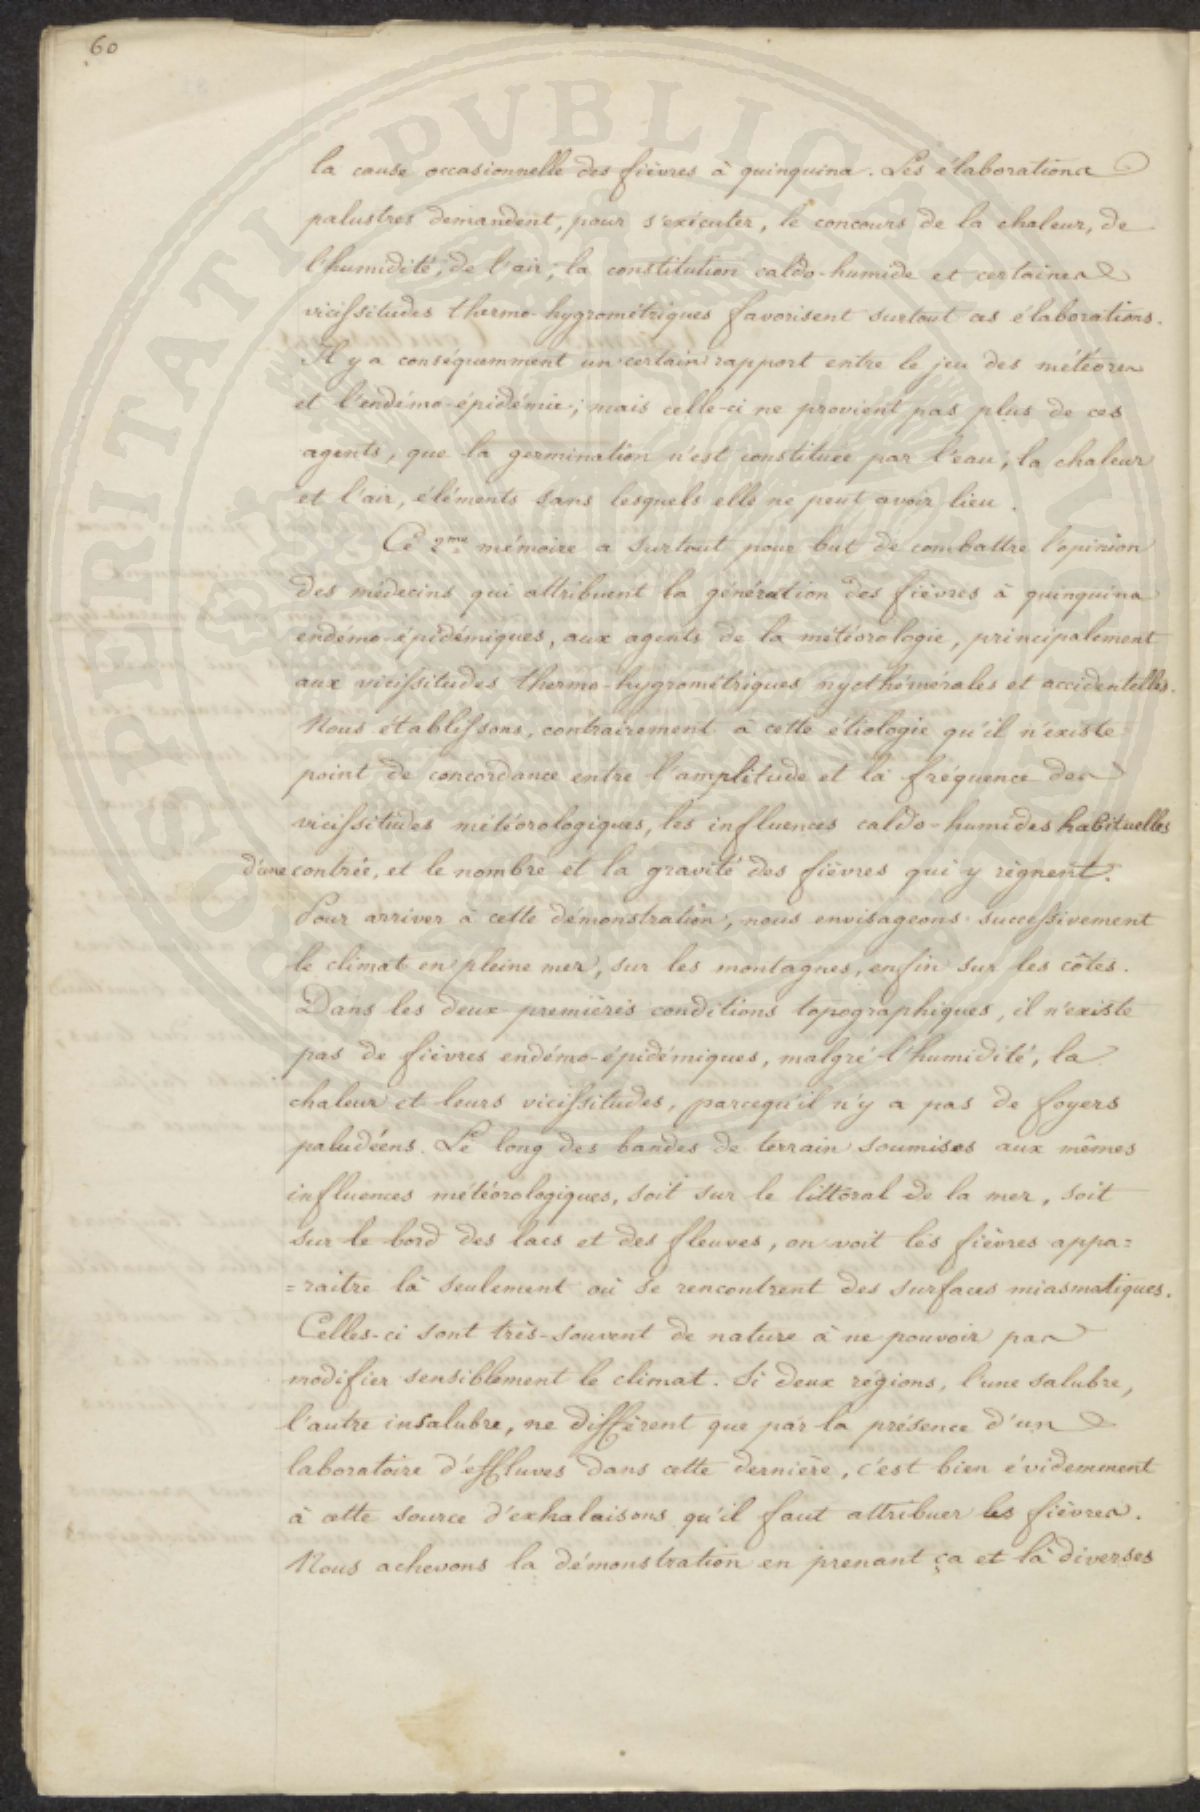 60
la cause occasionnelle des fièvres à quinquina. Les élaborations
palustres demandent, pour s'exécuter, le concours de la chaleur, de
l'humidité, de l'air; la constitution caldo-humide et certaines
vicissitudes thermo-hygrométriques favorisent surtout ces élaborations.
Il y a conséquemment un certain rapport entre le jeu des météores
et l'endémo-épidémie; mais celle-ci ne provient pas plus de ces
agents, que la germination n'est constituée par l'eau, la chaleur
et l'air, éléments sans lesquels elle ne peut avoir lieu.
Ce 2me mémoire a surtout pour but de combattre l'opinion
des médecins qui attribuent la génération des fièvres à quinquina
endémo-épidémiques, aux agents de la météorologie, principalement
aux vicissitudes thermo-hygrométriques nycthémérales et accidentelles.
Nous établissons, contrairement à cette étiologie qu'il n'existe
point de concordance entre l'amplitude et la fréquence des
vicissitudes météorologiques, les influences caldo-humides habituelles
d'une contrée, et le nombre et la gravité des fièvres qui y règnent.
Pour arriver à cette démonstration, nous envisageons successivement
le climat en pleine mer, sur les montagnes, enfin sur les côtes.
Dans les deux premières conditions topographiques, il n'existe
pas de fièvres endémo-épidémiques, malgré l'humidité, la
chaleur et leurs vicissitudes, parcequ'il n'y a pas de foyers
paludéens. Le long des bandes de terrain soumises aux mêmes
influences météorologiques, soit sur le littoral de la mer, soit
sur le bord des lacs et des fleuves, on voit les fièvres appa=
=raitre là seulement où se rencontrent des surfaces miasmatiques.
Celles-ci sont très-souvent de nature à ne pouvoir pas
modifier sensiblement le climat. Si deux régions, l'une salubre,
l'autre insalubre, ne diffèrent que par la présence d'un
laboratoire d'effluves dans cette dernière, c'est bien évidemment
à cette source d'exhalaisons qu'il faut attribuer les fièvres.
Nous achevons la démonstration en prenant ça et là diverses
PROSPERITATI PUBLICAE AUGENDAE